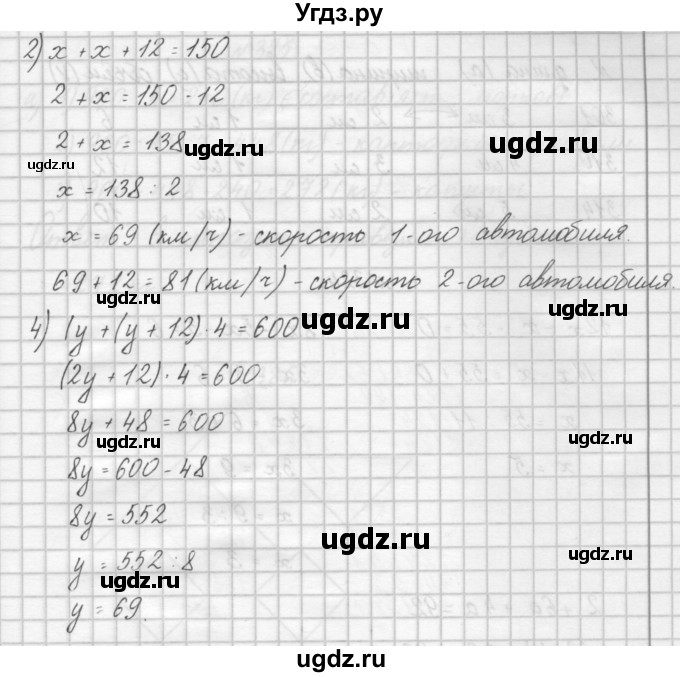 Угдз.ру
2) x + x + 12 = 150
2 + x = 150 - 12
2 + x = 138
ugdz.ru
ugdz.ru
ugdz.ru
x = 138 : 2
x = 69 (км/ч) - скорость 1-ого автомобиля.
69 + 12 = 81 (км/ч) - скорость 2-ого автомобиля.
ugdz.ru
ugdz.ru
4) (y + (y + 12) · 4 = 600
ugdz.ru
(2y + 12) · 4 = 600
8y + 48 = 600
ugdz.ru
ugdz.ru
8y = 600 - 48
8y = 552
ugdz.ru
ugdz.ru
y = 552 : 8
ugdz.ru
y = 69.
ugdz.ru